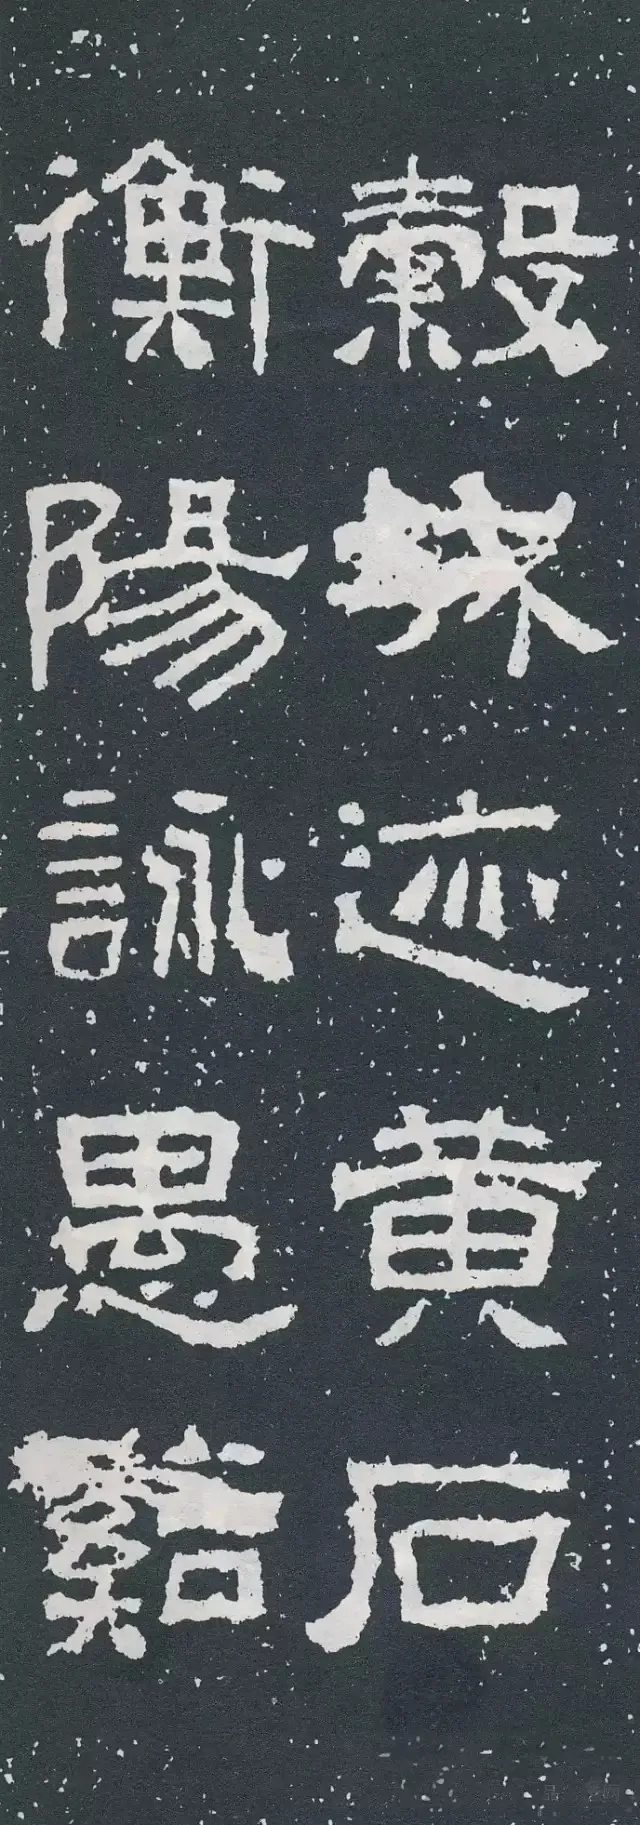 穀迹黄石
衡陽詠愚谿